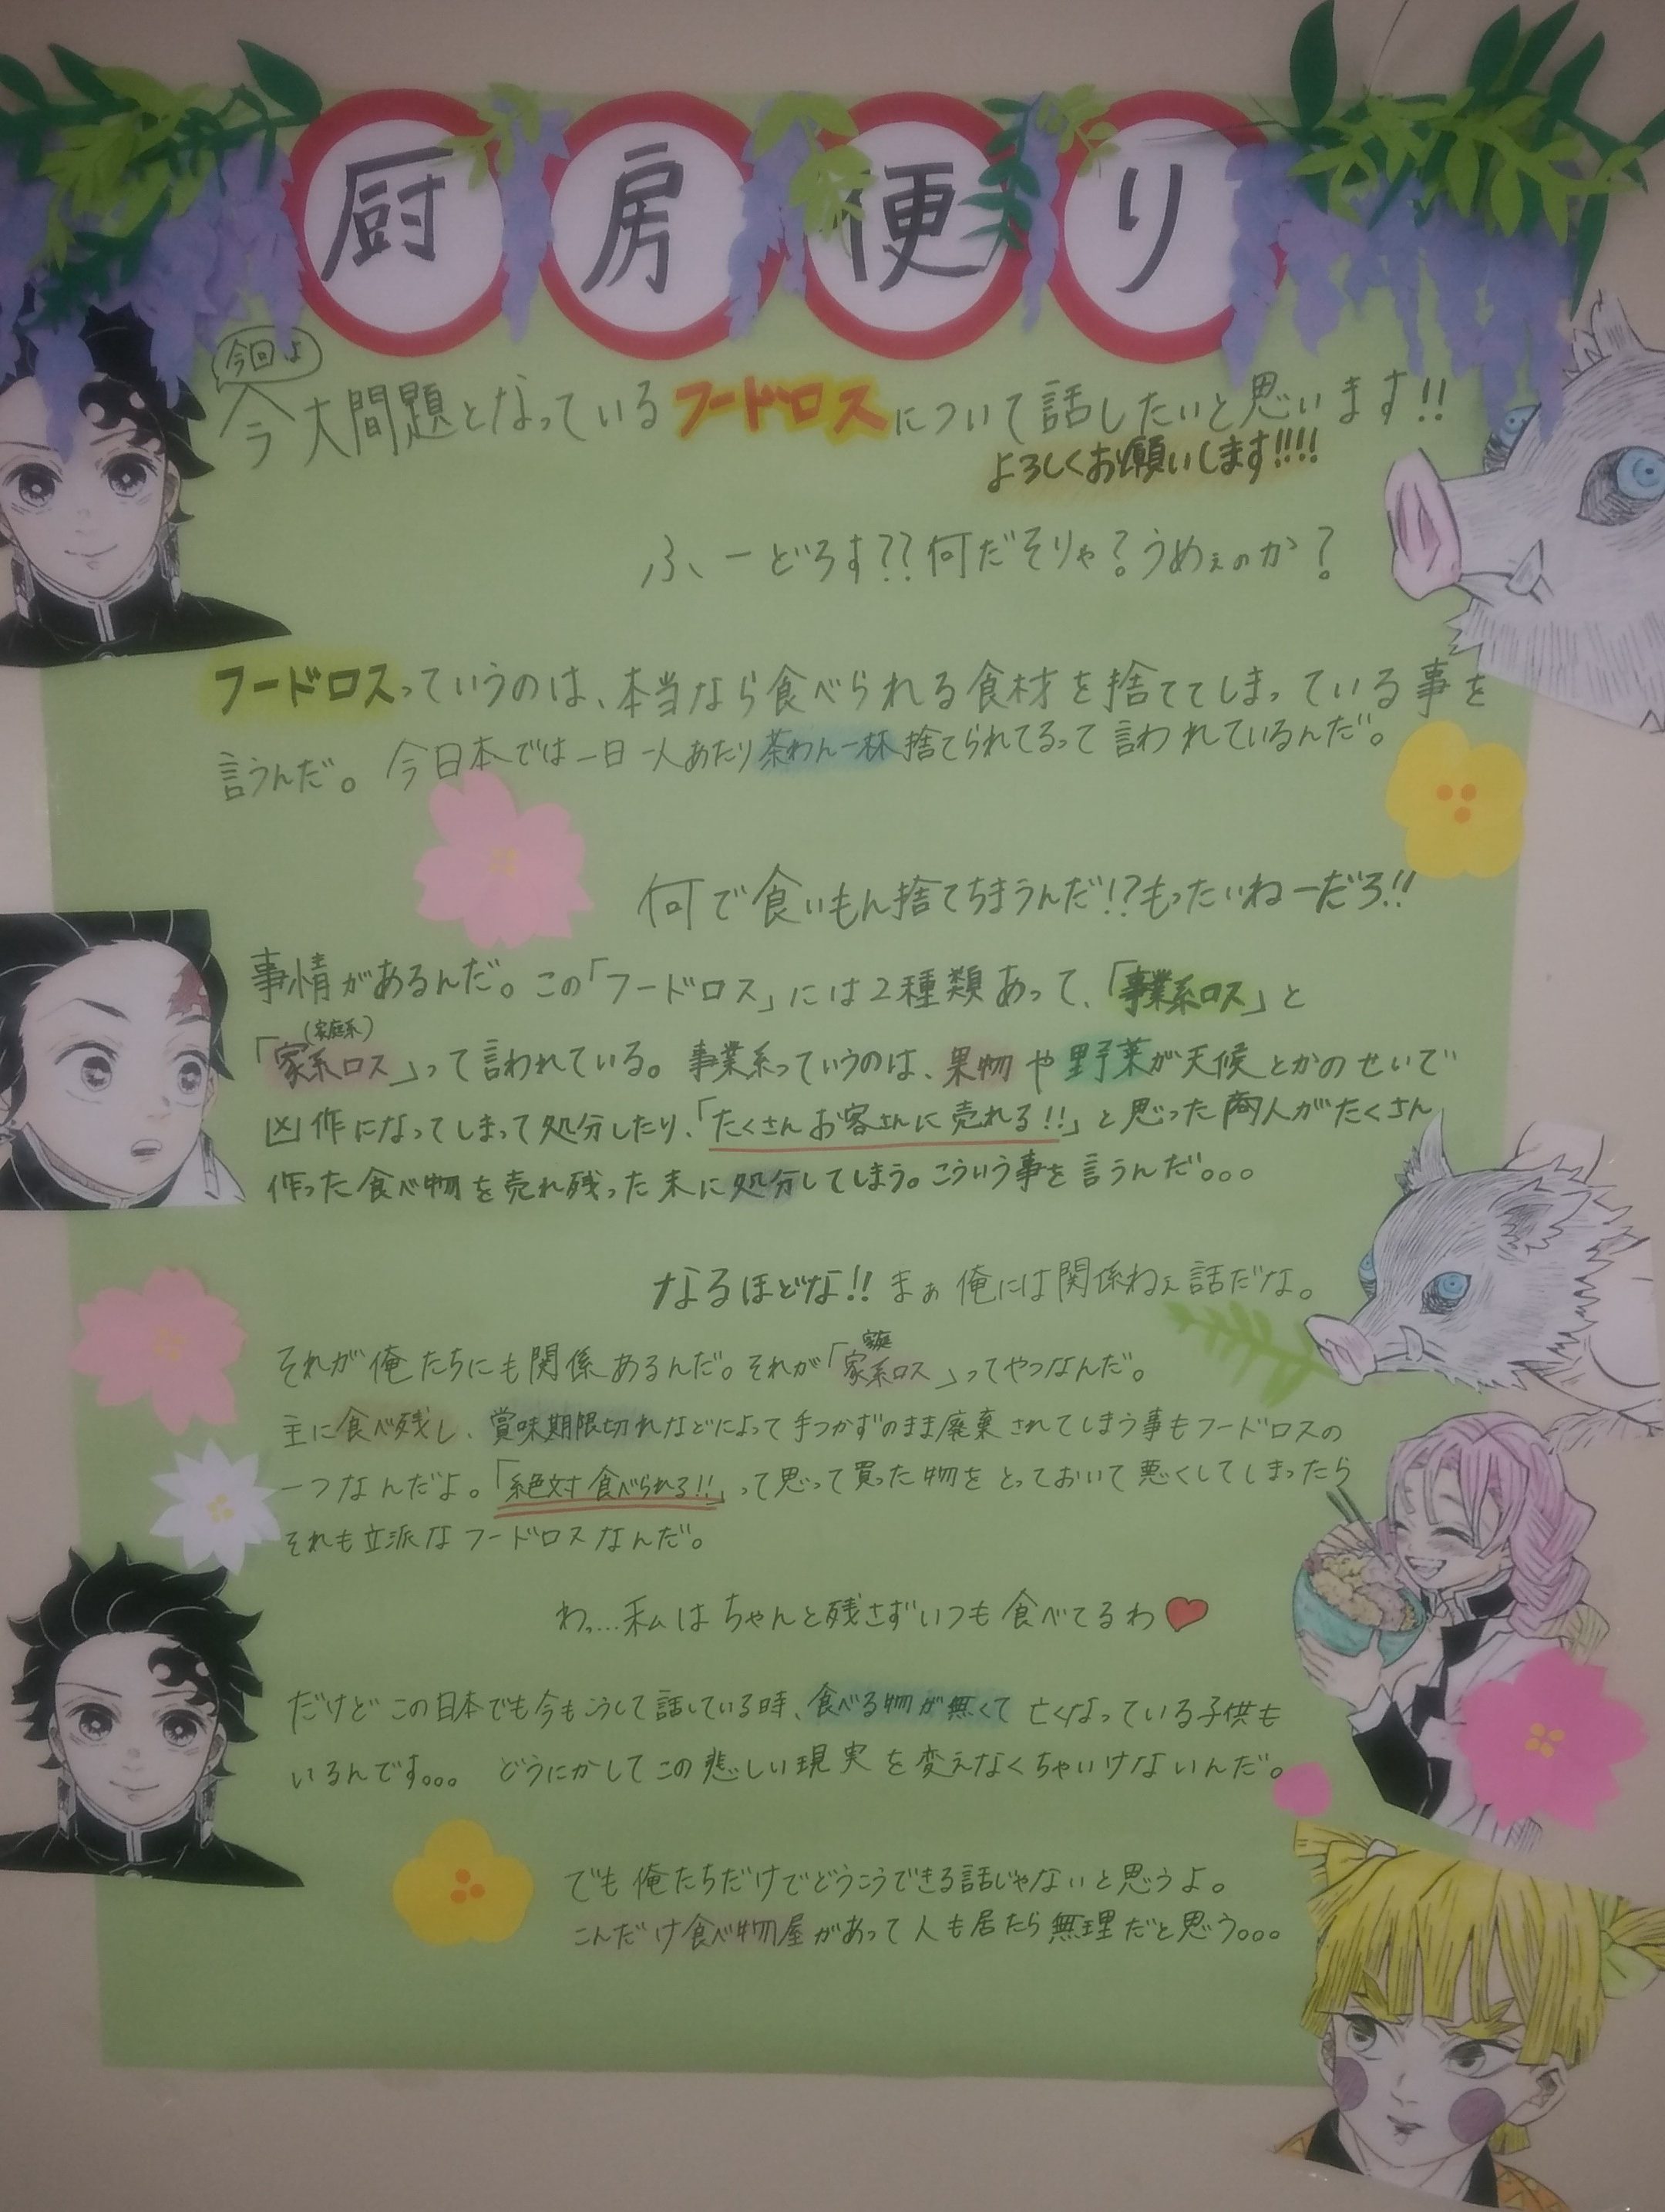 厨房便り
今回は
今大問題となっているフードロスについて話したいと思います!!
よろしくお願いします!!!!
ふ、ーどろす??何だそりゃ?うめぇのか?
フードロスっていうのは、本当なら食べられる食材を捨ててしまっている事を
言うんだ。今日本では一日一人あたり茶わん一杯捨てられてるって言われているんだ。
何で食いもん捨てちまうんだ!?もったいねーだろ!!
事情があるんだ。この「フードロス」には2種類あって、「事業系ロス」と
(家庭系)
「家系ロス」って言われている。事業系っていうのは、果物や野菜が天候とかのせいで
凶作になってしまって処分したり、「たくさんお客さんに売れる!!」と思った商人がたくさん
作った食べ物を売れ残った末に処分してしまう。こういう事を言うんだ。。。
なるほどな!!まぁ俺には関係ねぇ話だな。
家庭
それが俺たちにも関係あるんだ。それが「家系ロス」ってやつなんだ。
主に食べ残し、賞味期限切れなどによって手つかずのまま廃棄されてしまう事もフードロスの
一つなんだよ。「絶対食べられる!!」って思って買った物をとっておいて悪くしてしまったら
それも立派なフードロスなんだ。
わっ…私はちゃんと残さずいつも食べてるわ♥
だけどこの日本でも今もこうして話している時、食べる物が無くて亡くなっている子供も
いるんです。。。どうにかしてこの悲しい現実を変えなくちゃいけないんだ。
でも俺たちだけでどうこうできる話じゃないと思うよ。
こんだけ食べ物屋があって人も居たら無理だと思う。。。